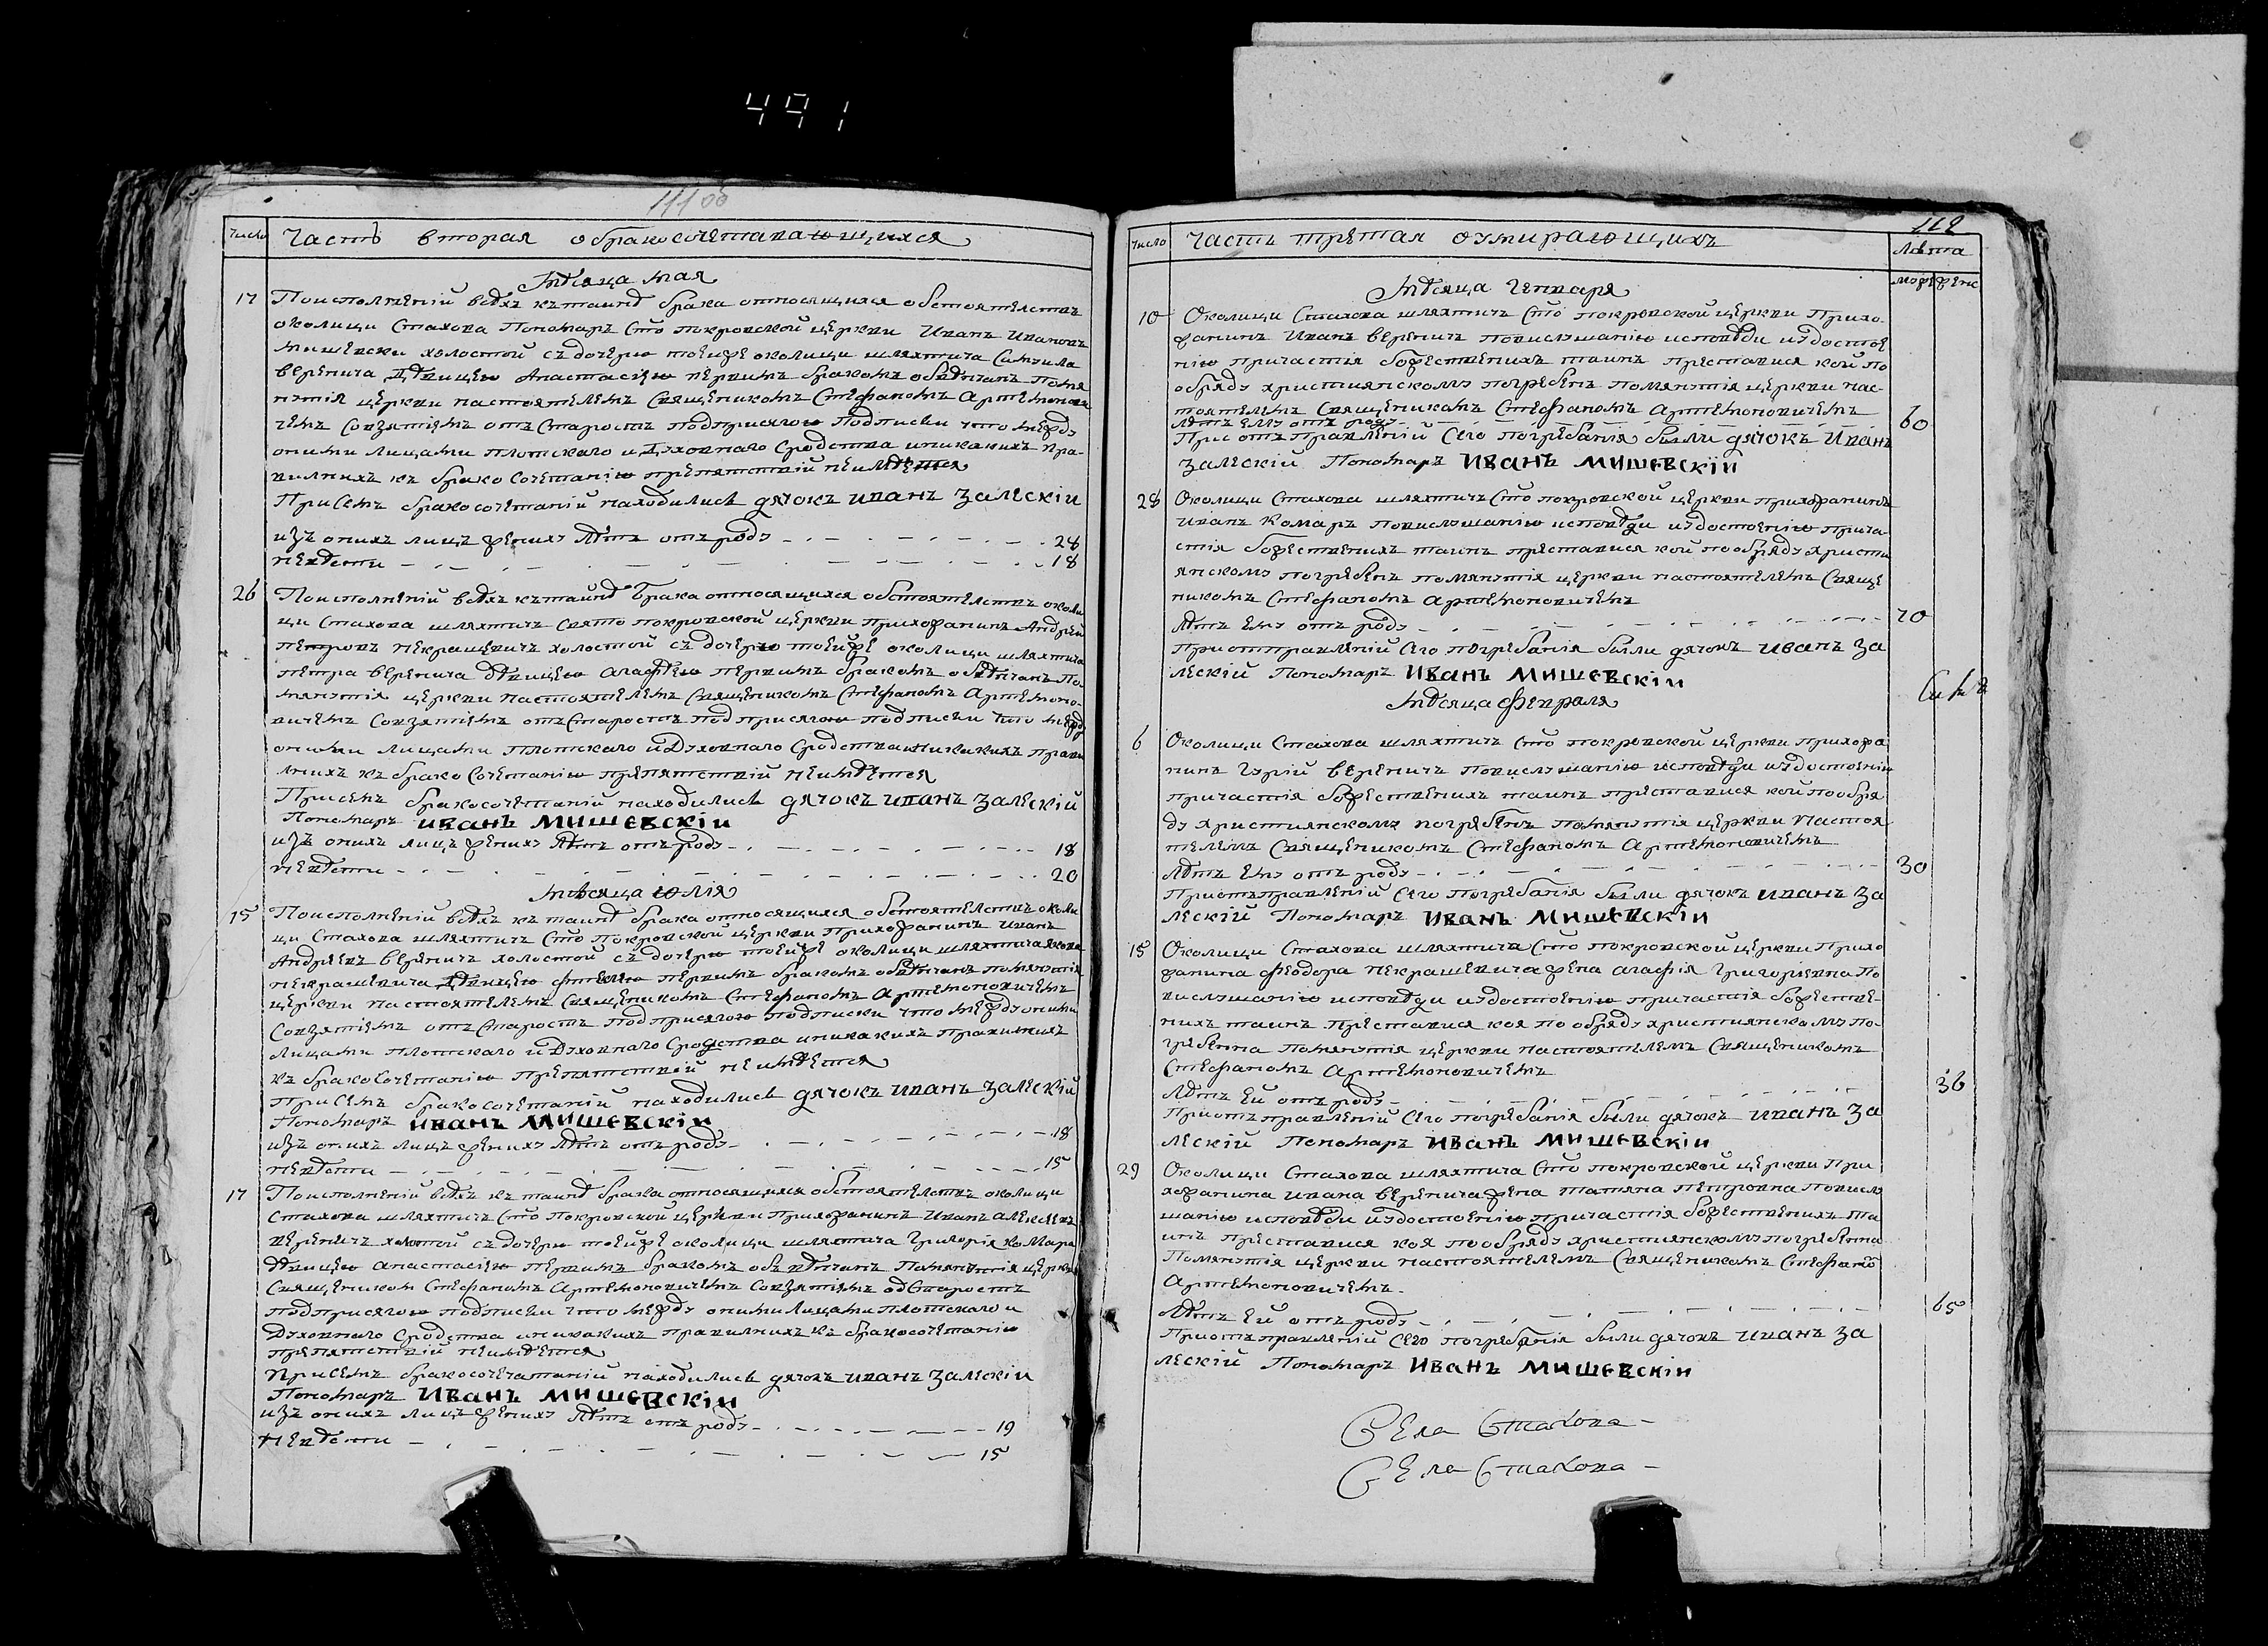 491
111 об
Число Часть вторая обракосочетавающихся
Мѣсяца мая
17 Поисполненій всѣхъ къ таинѣ брака относящихся обстоятелствъ
околици Стахова Пономаръ Сто покровской церкви Иванъ Ивановъ
Мишевски холостой съ дочерю тоейже околици шляхтича Самуила
веренича дѣвицею Анастасіею первимъ бракомъ обвѣнчанъ помя
нутія церкви настоятелемъ Священикомъ Стефаномъ Артемонови
чемъ Совзятіемъ отъ Старостъ подприсягою подписки что между
оними лицами плотскаго и Духовнаго Сродства иникакихъ пра-
вилнихъ къ бракосочетанію препятствій неимѣется
Присемъ бракосочетаній находились дячокъ иванъ залескіи
изъ онихъ лицъ жениху лѣтъ отъ роду 28
невѣсти 18
26 Поисполненій всѣхъ къ таинѣ брака относящихся обстоятелствъ околи
ци Стахова шляхтичъ Свято покровской церкви прихожанинъ Андрей
петровъ некрашевичъ холостой съ дочерю тоейже околици шляхтича
петра веренича дѣвицею агафіею первимъ бракомъ обвѣнчанъ по-
мянутія церкви настоятелемъ Священикомъ Стефаномъ Артемоно-
вичемъ Совзятіемъ отъ Старостъ подприсягою подписки что между
оними лицами плотскаго и Духовнаго Сродства иникакихъ прави
лнихъ къ бракосочетанію препятствій неимѣется
Присемъ бракосочетаній находились дячокъ иванъ залескій
Пономаръ иванъ мишевскіи
изъ онихъ лицъ жениху лѣтъ отъ роду 18
невѣсти 20
мѣсяца юлія
15 Поисполненій всѣхъ къ таинѣ брака относящихся обстоятелствъ околи
ци Стахова шляхтичъ Сто Покровской церкви прихожанинъ Иванъ
Андреевъ вереничъ холостой съ дочерю тоейже околици шляхтича якова
некрашевича дѣвицею первимъ бракомъ обвѣнчанъ помянутія
церкви настоятелемъ Священикомъ Стефаномъ Артемоновичемъ
Совзятіемъ отъ Старостъ подприсягою подписки что между оними
лицами плотскаго и Духовнаго Сродства иникакихъ правилнихъ
къ бракосочетанію препятствій неимѣется
Присемъ бракосочетаній находились дячокъ иванъ залескій
Пономаръ иванъ мишевскіи
изъ онихъ лицъ жениху лѣтъ отъ роду 18
невѣсти 15
17 Поисполненій всѣхъ къ таинѣ брака относящихся обстоятелствъ околици
Стахова шляхтичъ Сто Покровской церкви прихожанинъ Иванъ алексеевъ
вереничъ холостой съ дочерю тоейже околици шляхтича Григорія комара
дѣвицею анастасіею первимъ бракомъ обвѣнчанъ помянутія церкви
Священиком Стефаномъ Артемоновичемъ Совзятіемъ од Старостъ
подприсягою подписки что между оними лицами плотскаго и
Духовнаго Сродства иникакихъ правилнихъ къ бракосочетанію
препятствій неимѣется
Присемъ бракосочетаній находились дячокъ иванъ залескіи
Пономаръ Иванъ мишевскіи
изъ онихъ лицъ жениху лѣтъ отъ роду 19
невѣсти 15
112
Число Часть третая оумирающихъ Лѣта
муж жен
Мѣсяца Генваря
10 Околици Стахова шляхтичъ Сто покровской церкви Прихо-
жанинъ Иванъ веренич повислушанію исповѣди иудостое
нію причастія божественихъ таинъ преставися кой по
обряду християнскому погребенъ помянутія церкви нас-
тоятелемъ Священикомъ Стефаномъ Артемоновичемъ
Лѣтъ ему отъ роду 60
При отъправленій Сего погребанія были дячокъ Иванъ
залескій Пономаръ иванъ мишевскіи
28 Околици Стахова шляхтичъ Сто покровской церкви прихожанинъ
иванъ Комаръ повислушанію исповѣди иудостоенію прича
стія божественихъ таинъ преставися кой по обряду христи
янскому погребенъ помянутія церкви настоятелемъ Свяще
никомъ Стефаномъ Артемоновичемъ
Лѣтъ ему отъ роду 70
При отправленій Сего погребанія были дячокъ иванъ за
лескій Пономаръ иванъ мишевскіи
Мѣсяца февраля
6 Околици Стахова шляхтичъ Сто покровской церкви прихожа
нинъ Гурій вереничъ повислушанію исповѣди иудостоенію
причастія божественихъ таинъ преставися кой по обря
ду християнскому погребенъ помянутія церкви настоя
телемъ Священикомъ Стефаномъ Артемоновичемъ
Лѣтъ ему отъ роду 30
При отъправленій Сего погребанія были дячокъ иванъ за
лескій Пономаръ иванъ мишевскіи
15 Околици Стахова шляхтича Сто покровской церкви Прихо
жанина феодора некрашевича жена агафія григориевна по
вислушанію исповѣди иудостоенію причастія божестве-
нихъ таинъ преставися коя по обряду християнскому по-
гребенна помянутія церкви настоятелемъ Священикомъ
Стефаномъ Артемоновичемъ
Лѣтъ Ей отъ роду 36
При отъправленій Сего погребанія были дячокъ иванъ за
лескій Пономаръ иванъ мишевскіи
29 Околици Стахова шляхтича Сто покровской церкви При
хожанина ивана веренича жена татяна петровна повислу
шанію исповѣди иудостоенію причастія божественихъ та
инъ преставися коя по обряду християнскому погребенна
помянутія церкви настоятелемъ Священикомъ Стефано
Артемоновичемъ
Лѣтъ Ей отъ роду 65
При отъправленій Сего погребанія были дячокъ иванъ за
лескій Пономаръ иванъ мишевскіи
Села Стахова
Села Стахова